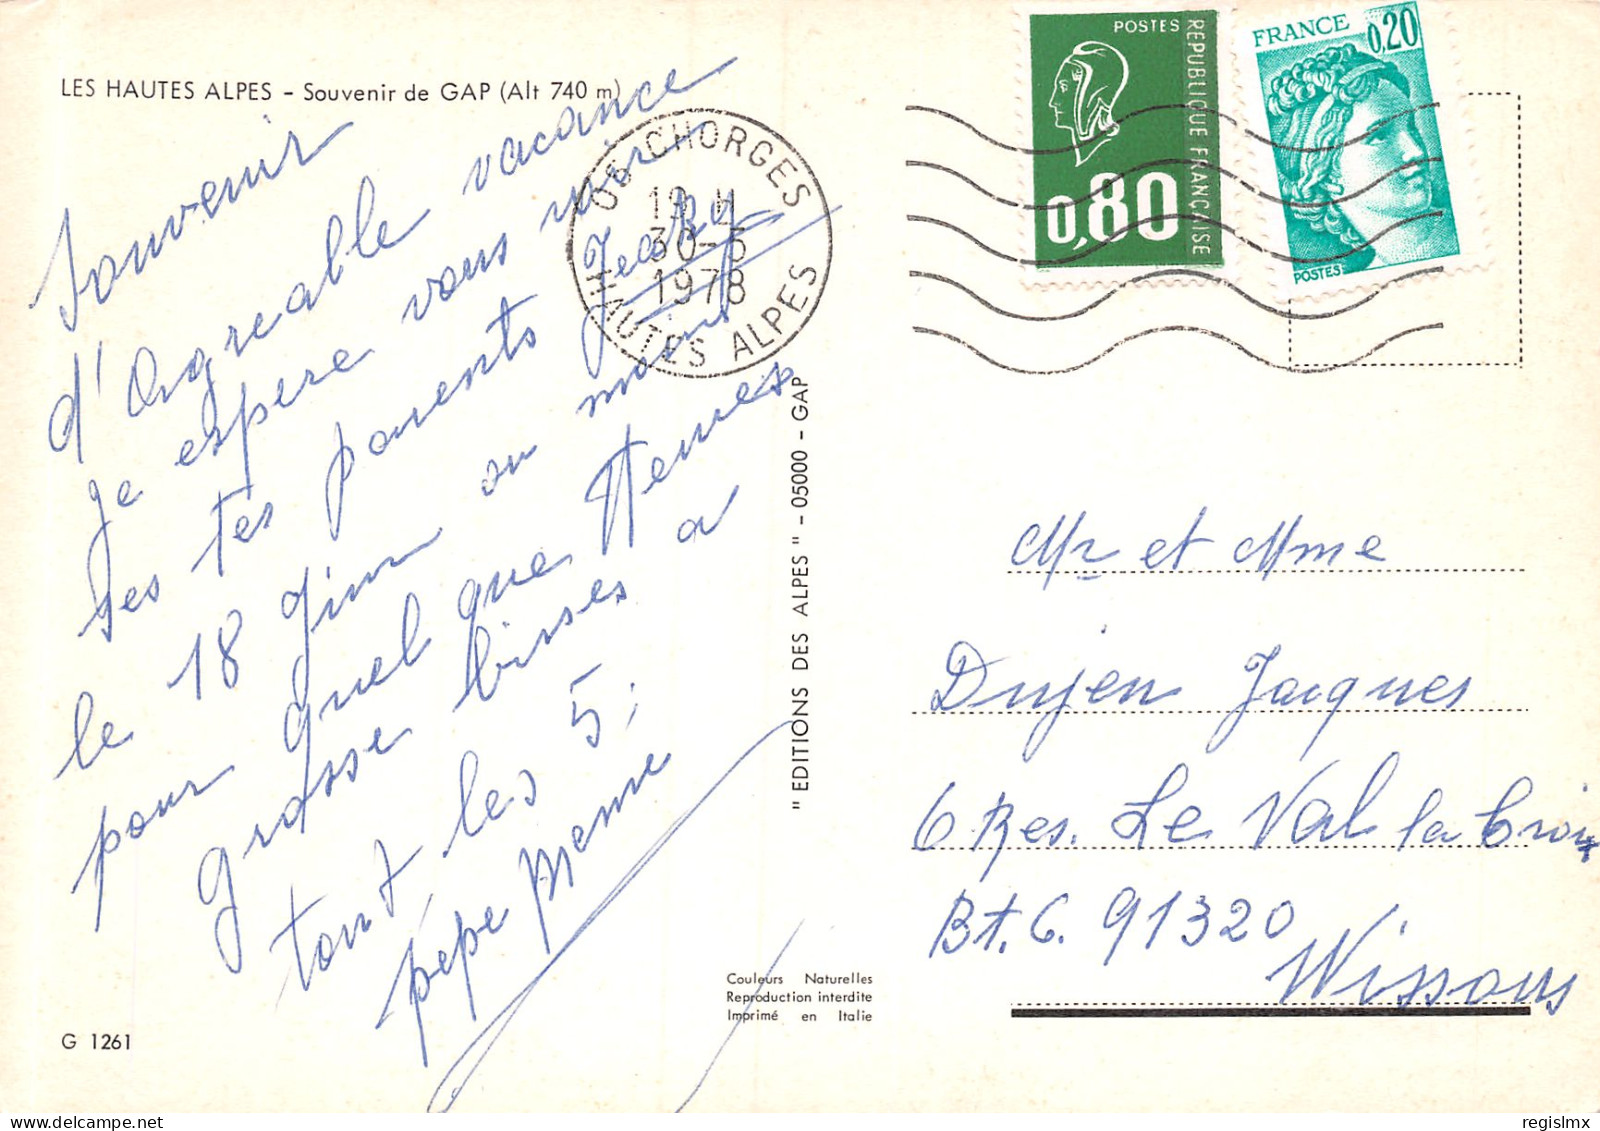 LES HAUTES ALPES - Souvenir de GAP (Alt 740 m)
Souvenir
d'Angreable vacance
Je espere vous voir
tes parents Jecky
le 18 Jiun ou
pour quel que
grosse bisses a
tout les 5,
pépé Meme
G 1261
" EDITIONS DES ALPES " - 05000 - GAP
Couleurs Naturelles
Reproduction interdite
Imprimé en Italie
05 CHORGES
19 H
30-3
1978
HAUTES ALPES
POSTES
REPUBLIQUE FRANCAISE
0,80
FRANCE
0,20
POSTES
Mr et Mme
Dujen Jacques
6 Res. Le Val la Croix
Bt. C. 91320
Wissous
regislmx